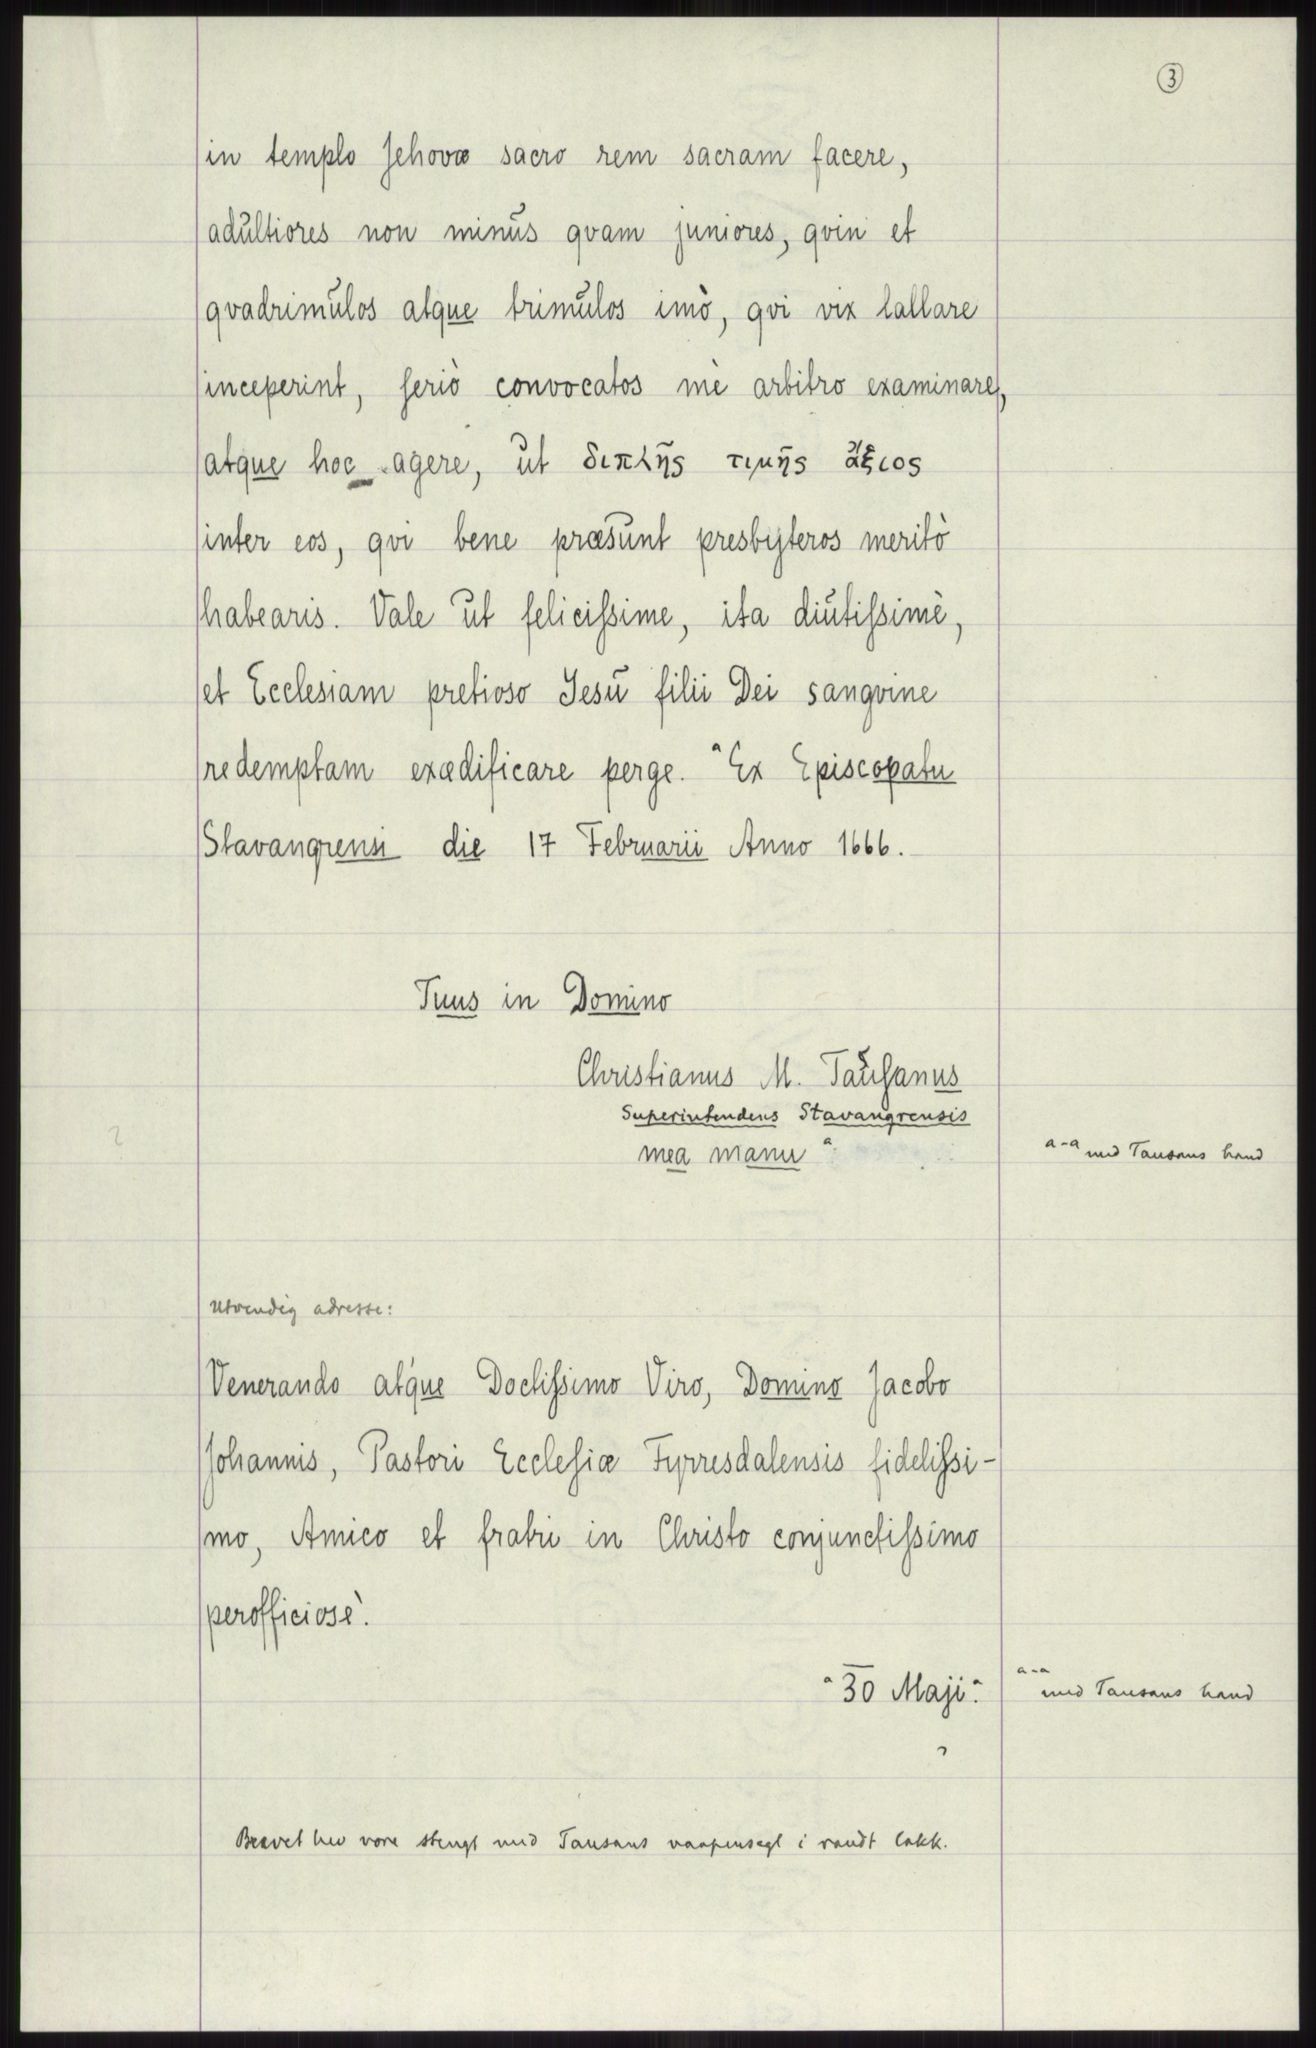 3
in templo Jehovæ sacro rem sacram facere,
adultiores non minus qvam juniores, qvin et
qvadrimulos atque trimulos imò, qvi vix lallare
inceperint, seriò convocatos mè arbitro examinare,
atque hoc agere, ut διπλῆς τιμῆς ἄξιος
inter eos, qvi bene præsunt presbyteros meritò
habearis. Vale ut felicissime, ita diutissimè,
et Ecclesiam pretioso Jesu filii Dei sangvine
redemptam exædificare perge. ᵃEx Episcopatu
Stavangrensi die 17 Februarii Anno 1666.
Tuus in Domino
Christianus M. Tausanus
Superintendens Stavangrensis
mea manuᵃ
a-a med Tausans hand
2
Utvendig adresse:
Venerando atque Doctissimo Viro, Domino Jacobo
Johannis, Pastori Ecclesiæ Fyrresdalensis fidelissi-
mo, Amico et fratri in Christo conjunctissimo
perofficiosè.
ᵃ30 Maji.ᵃ
a-a med Tausans hand
Brevet hev vore stengt med Tausans vaapensegl i raudt lakk.